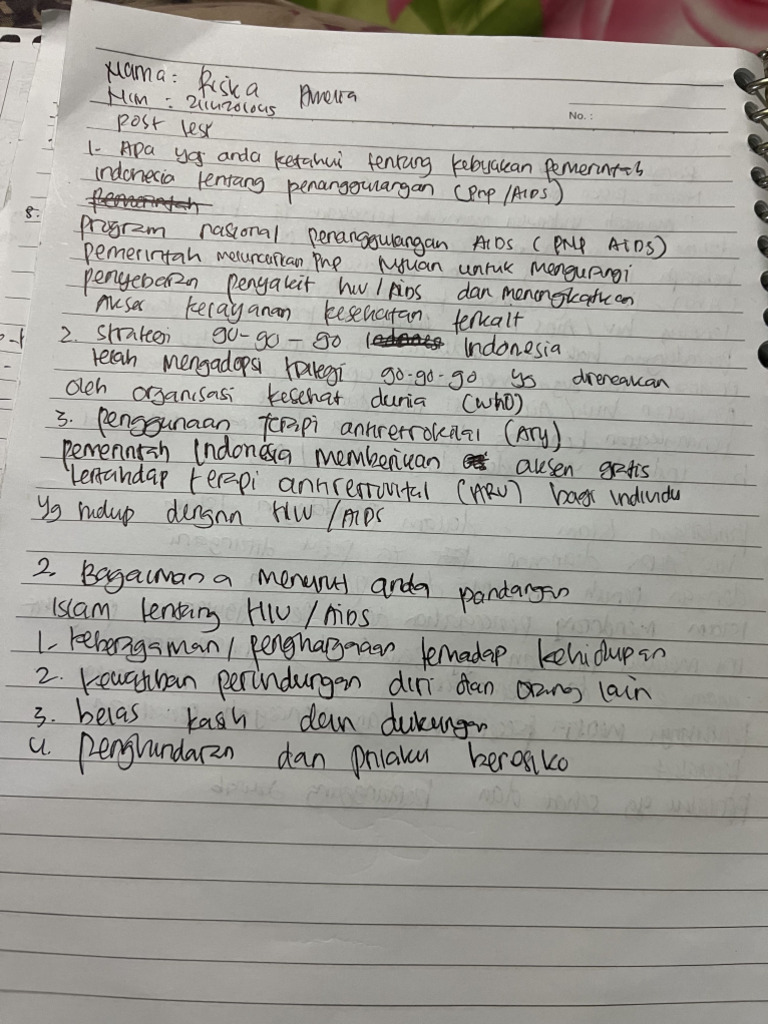 Nama: Riska Amelia
No.:
NIM :
post test
1- Apa yg anda ketahui tentang kebijakan pemerintah
indonesia tentang penanggulangan (PnP /AIDS)
8.
program nasional penanggulangan AIDS (PNP AIDS)
pemerintah meluncurkan pnp tujuan untuk mengurangi
penyebaran penyakit hiv/Aids dan meningkatkan
Akses kesehatan terkait
2. Strategi 90-90-90 Indonesia
telah mengadopsi trategi 90-90-90 yg
oleh organisasi kesehat dunia (WhO)
3. penggunaan terapi
pemerintah Indonesia memberikan aksen gratis
terhadap terapi (ARV) bagi individu
Yg hidup dengan HIV /AIDS
2. Bagaimana menurut anda pandangan
Islam tentang HIV/Aids
1- keberagaman/ penghargaan terhadap kehidupan
2. kewajiban perlindungan diri dan orang lain
3. belas kasih dan dukungan
4. penghindaran dan prilaku berosiko